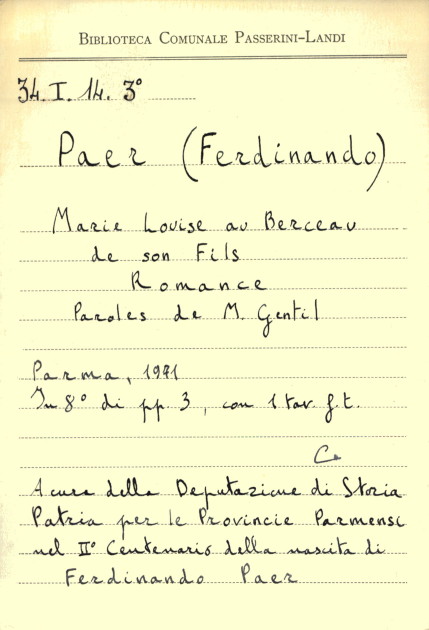 BIBLIOTECA COMUNALE PASSERINI-LANDI
34. I. 14. 3°
Paer (Ferdinando)
Marie Louise au Berceau
de son Fils
Romance
Paroles de M. Gentil
Parma, 1971
In 8° di pp. 3, con 1 tav. f. t.
Ce
A cura della Deputazione di Storia
Patria per le Provincie Parmensi
nel II° Centenario della nascita di
Ferdinando Paer